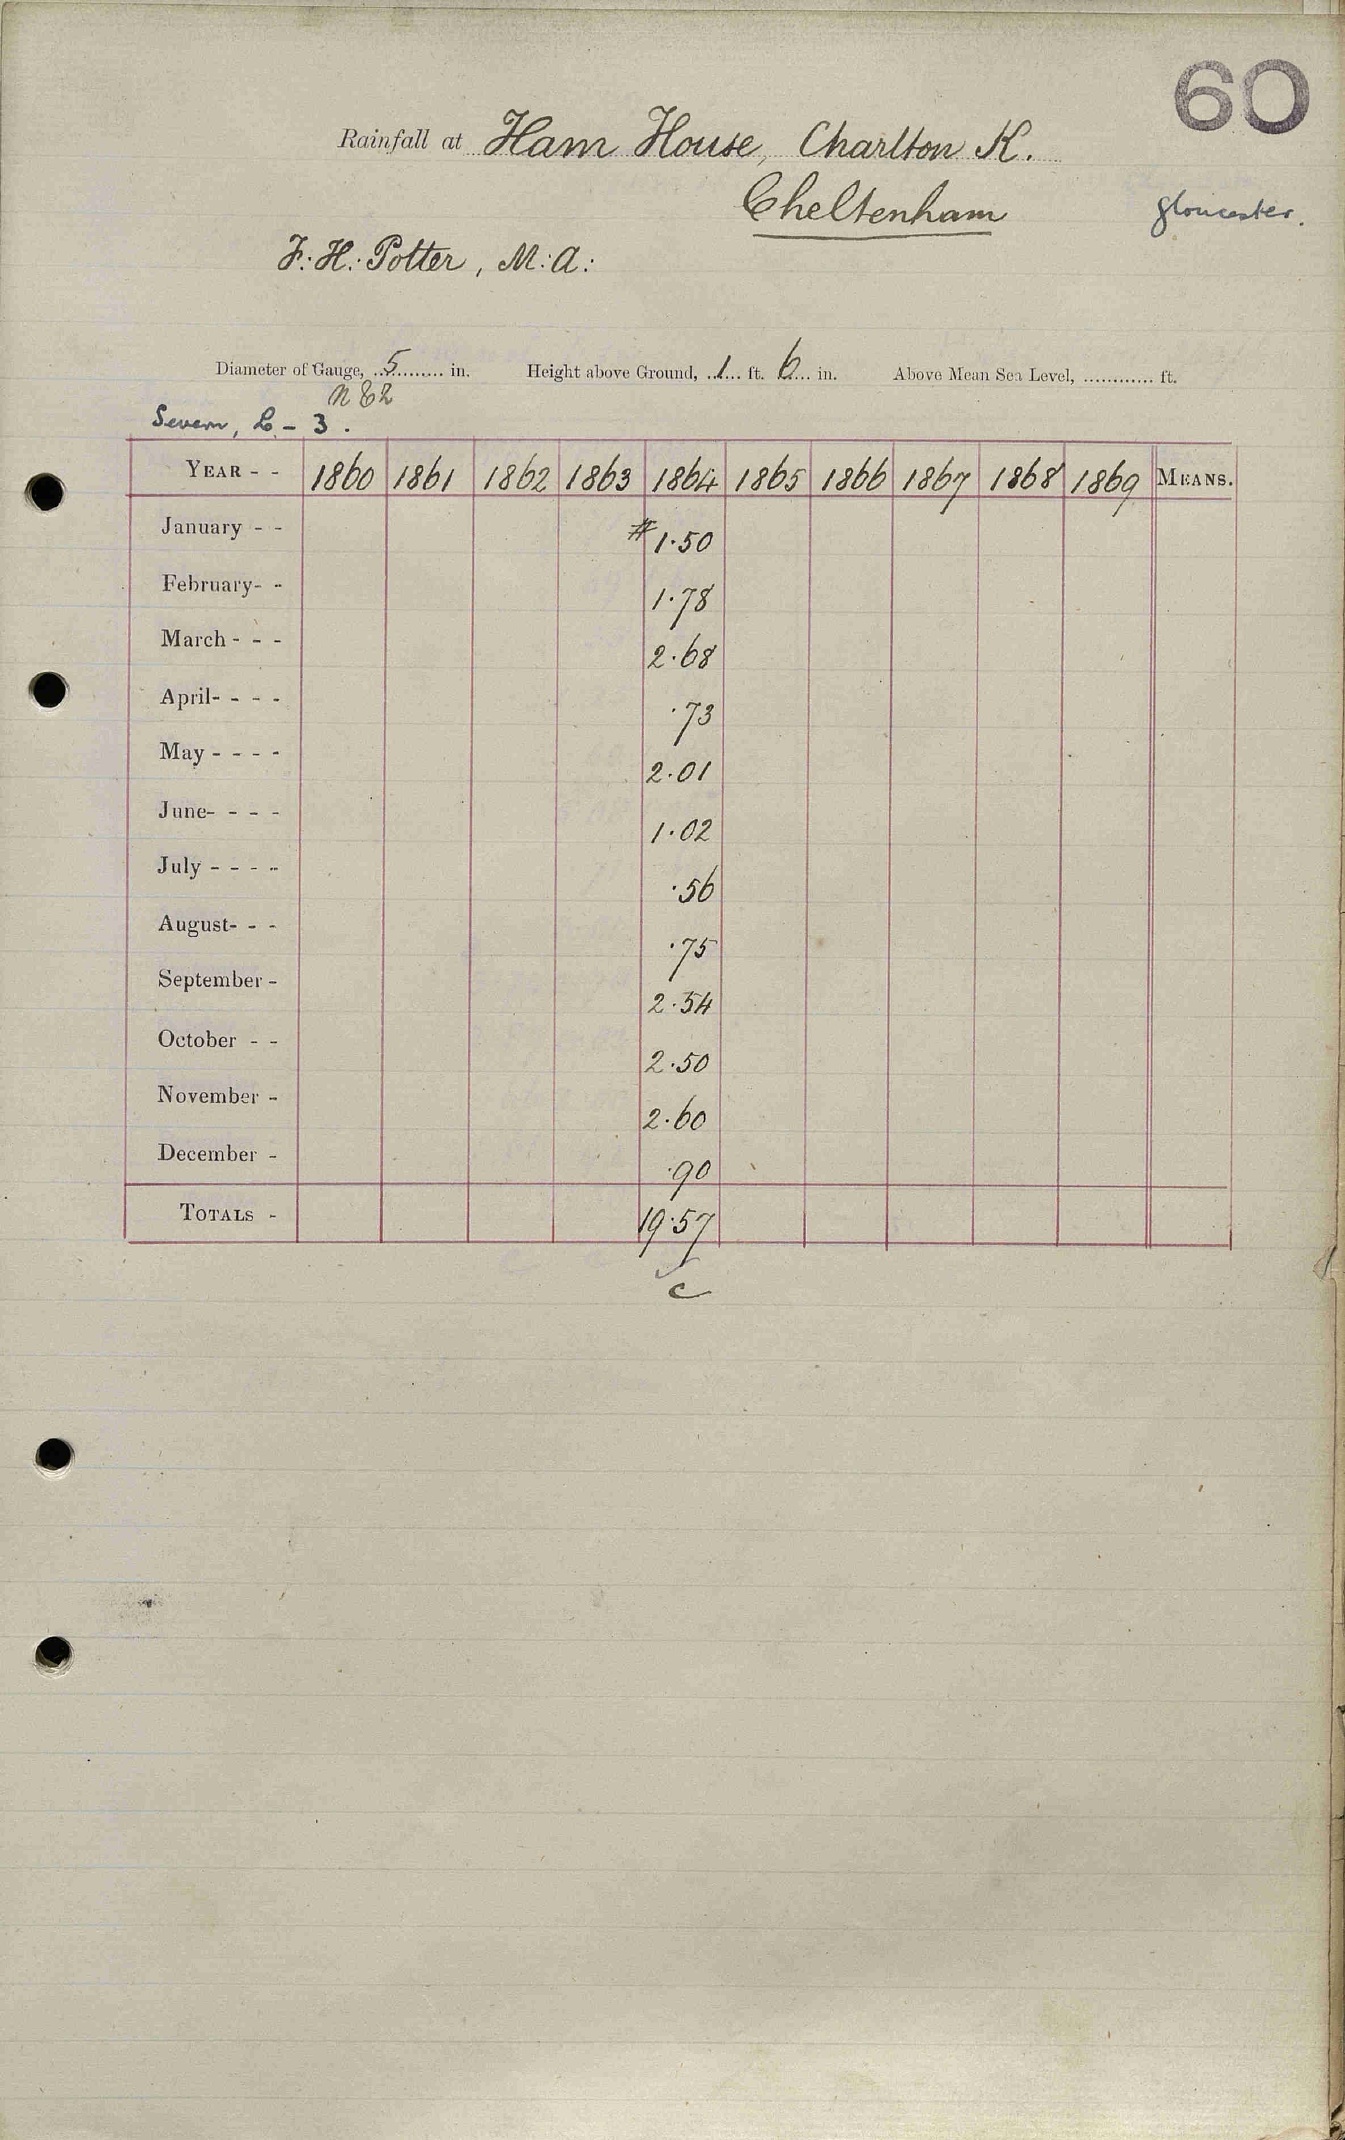 60
Rainfall at Ham House, Charlton K.
Cheltenham
Gloucester.
F.: H.: Potter, M.: A.:
Diameter of Gauge, 5 in. Height above Ground, 1 ft. 6 in. Above Mean Sea Level, ft.
Severn, L - 3.
YEAR - - 1860 1861 1862 1863 1864 1865 1866 1867 1868 1869 MEANS.
January - - # 1.50
February- - 1.78
March - - - 2.68
April- - - - .73
May - - - - 2.01
June- - - - 1.02
July - - - - .56
August- - - .75
September - 2.54
October - - 2.50
November - 2.60
December - .90
TOTALS - 19.57
c